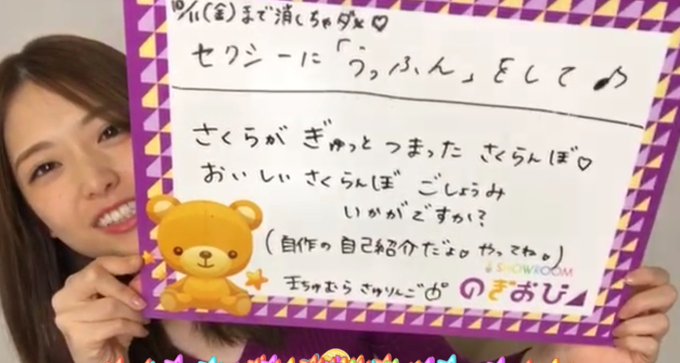 10/11(金)まで消しちゃダメ♡
セクシーに「うっふん」をして♪
さくらが ぎゅっと つまった さくらんぼ♡
おいしい さくらんぼ ごしょうみ
いかがですか?
(自作の自己紹介だよ。やってね。)
SHOWROOM
のぎおび